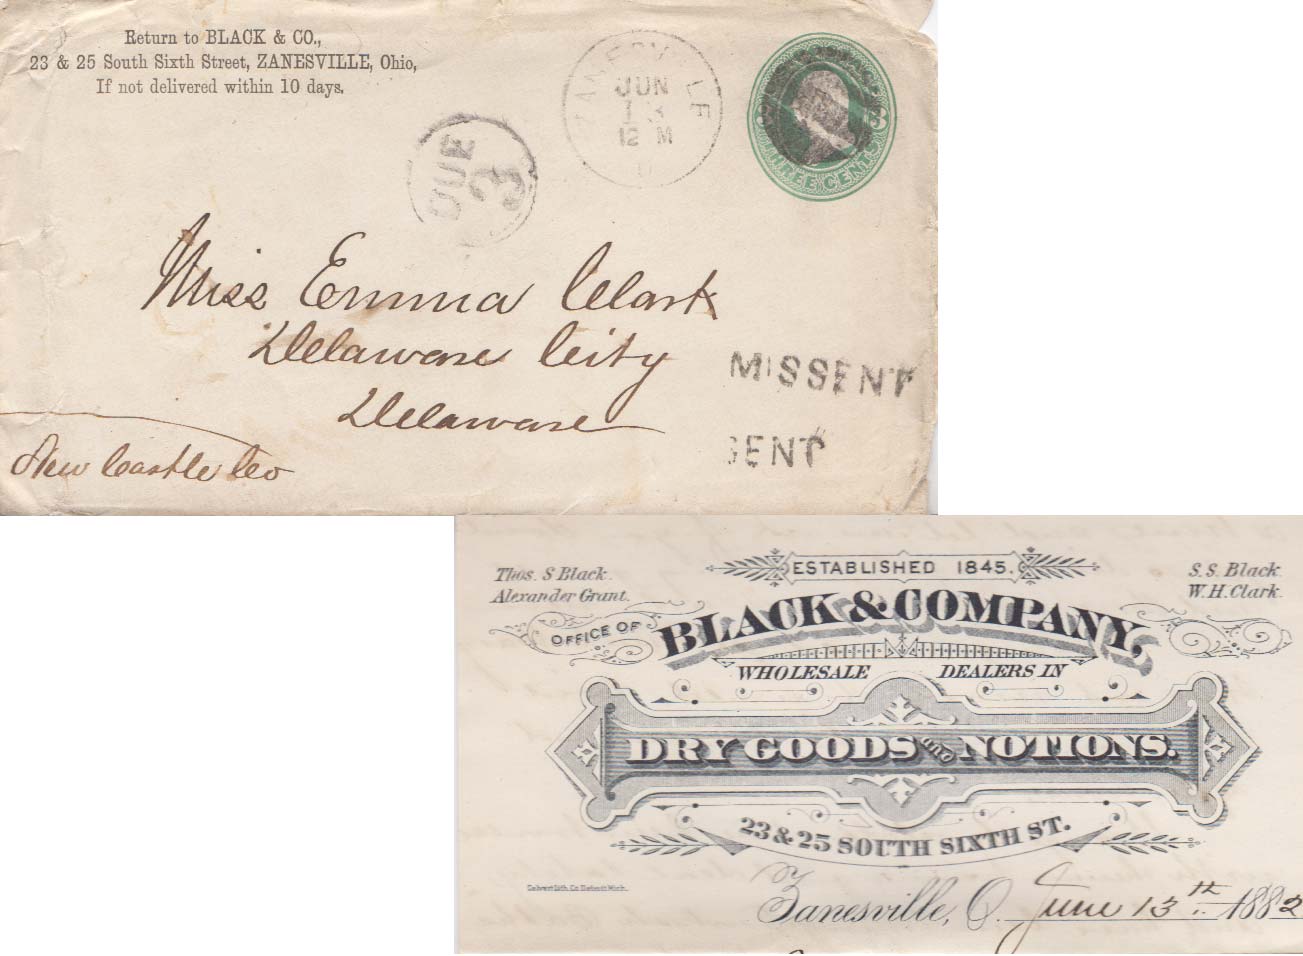 Return to BLACK & CO.,
23 & 25 South Sixth Street, ZANESVILLE, Ohio,
If not delivered within 10 days.
JUN
13
12 M
DUE
3
THREE CENTS
Miss Emma Clark
Delaware City
Delaware
New Castle Co
MISSENT
SENT
ESTABLISHED 1845.
Thos. S Black.
Alexander Grant.
S. S. Black
W. H. Clark.
OFFICE OF
BLACK & COMPANY,
WHOLESALE DEALERS IN
DRY GOODS and NOTIONS.
23 & 25 SOUTH SIXTH ST.
Calvert Lith. Co. Detroit Mich.
Zanesville, O. June 13th 1882